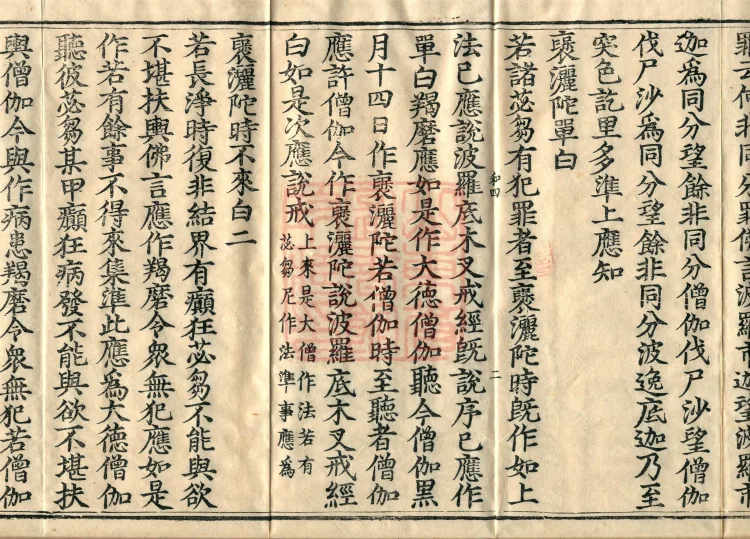 迦爲同分望餘非同分僧伽伐尸沙望僧伽
伐尸沙爲同分望餘非同分波逸底迦乃至
突色訖里多準上應知
褒灑陀單白
若諸苾芻有犯罪者至褒灑陀時旣作如上
法已應說波羅底木叉戒經旣說序已應作
和四
二
單白羯磨應如是作大德僧伽聽今僧伽黑
月十四日作褒灑陀若僧伽時至聽者僧伽
應許僧伽今作褒灑陀說波羅底木叉戒經
白如是次應說戒上來是大僧作法若有
苾芻尼作法準事應爲
褒灑陀時不來白二
若長淨時復非結界有癲狂苾芻不能與欲
不堪扶輿佛言應作羯磨令衆無犯應如是
作若有餘事不得來集準此應爲大德僧伽
聽彼苾芻某甲癲狂病發不能與欲不堪扶
輿僧伽今與作病患羯磨令衆無犯若僧伽